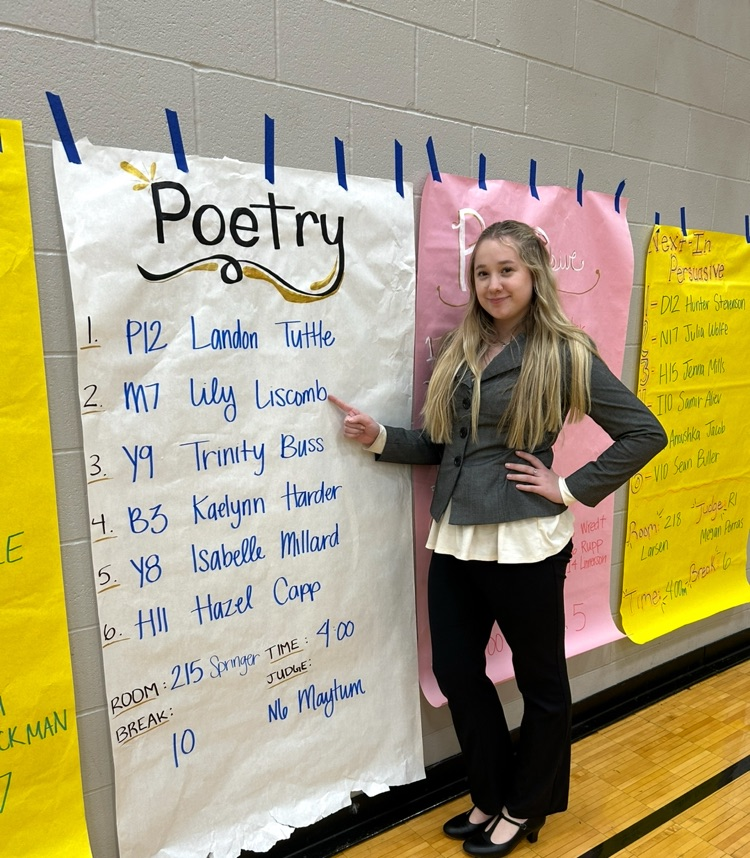 LE
CKMAN
7
Poetry
1. P12 Landon Tuttle
2. M7 Lily Liscomb
3. Y9 Trinity Buss
4. B3 Kaelynn Harder
5. Y8 Isabelle Millard
6. H11 Hazel Capp
ROOM: 215 Springer TIME: 4:00
BREAK: 10 JUDGE: N6 Maytum
Rupp
5
Next-In
Persuasive
D12 Hunter Stevenson
N17 Julia Wolfe
H15 Jenna Mills
I10 Samir Abev
Anushka Jacob
V10 Sean Biller
Room: 218 Judge: R1
Larsen Megan
Time: 4:00 Break: 6